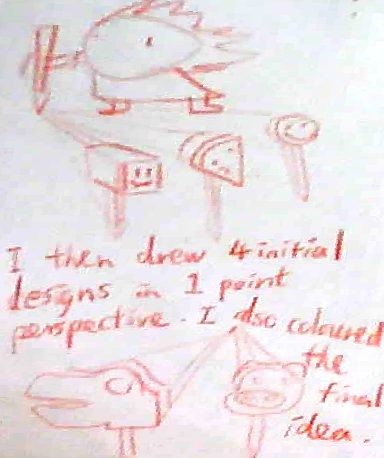 I then drew 4 initial
designs in 1 point
perspective. I also coloured
the
final
idea.